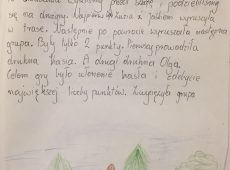 przed szkołą i podzieliliśmy
się na drużyny. Najpierw Zuzia z Jaśkiem wyruszyła
w trasę. Następnie po pewnym wyruszała następna
grupa. Były tylko 2 punkty. Pierwszy prowadziła
druhna Kasia. A drugi druhna Olga.
Celem gry było ułożenie hasła i zdobycie
największej liczby punktów. Zwyciężyła grupa